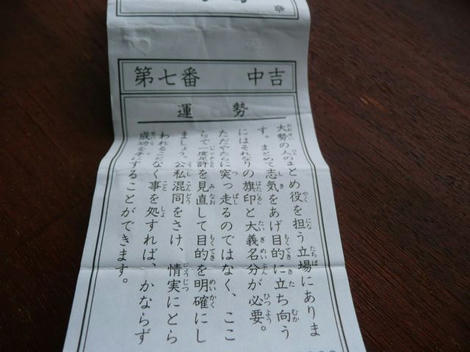 第七番 中吉
運勢
大勢の人のまとめ役を担う立場にありま
す。まとめて志気をあげ目的に立ち向う
にはそれなりの旗印と大義名分が必要。
ただやたらに突っ走るのではなく、ここ
らで一度足許を見直して目的を明確にし
ましょう。公私混同をさけ、情実にとら
われることなく事を処すれば、かならず
成功を手にすることができます。